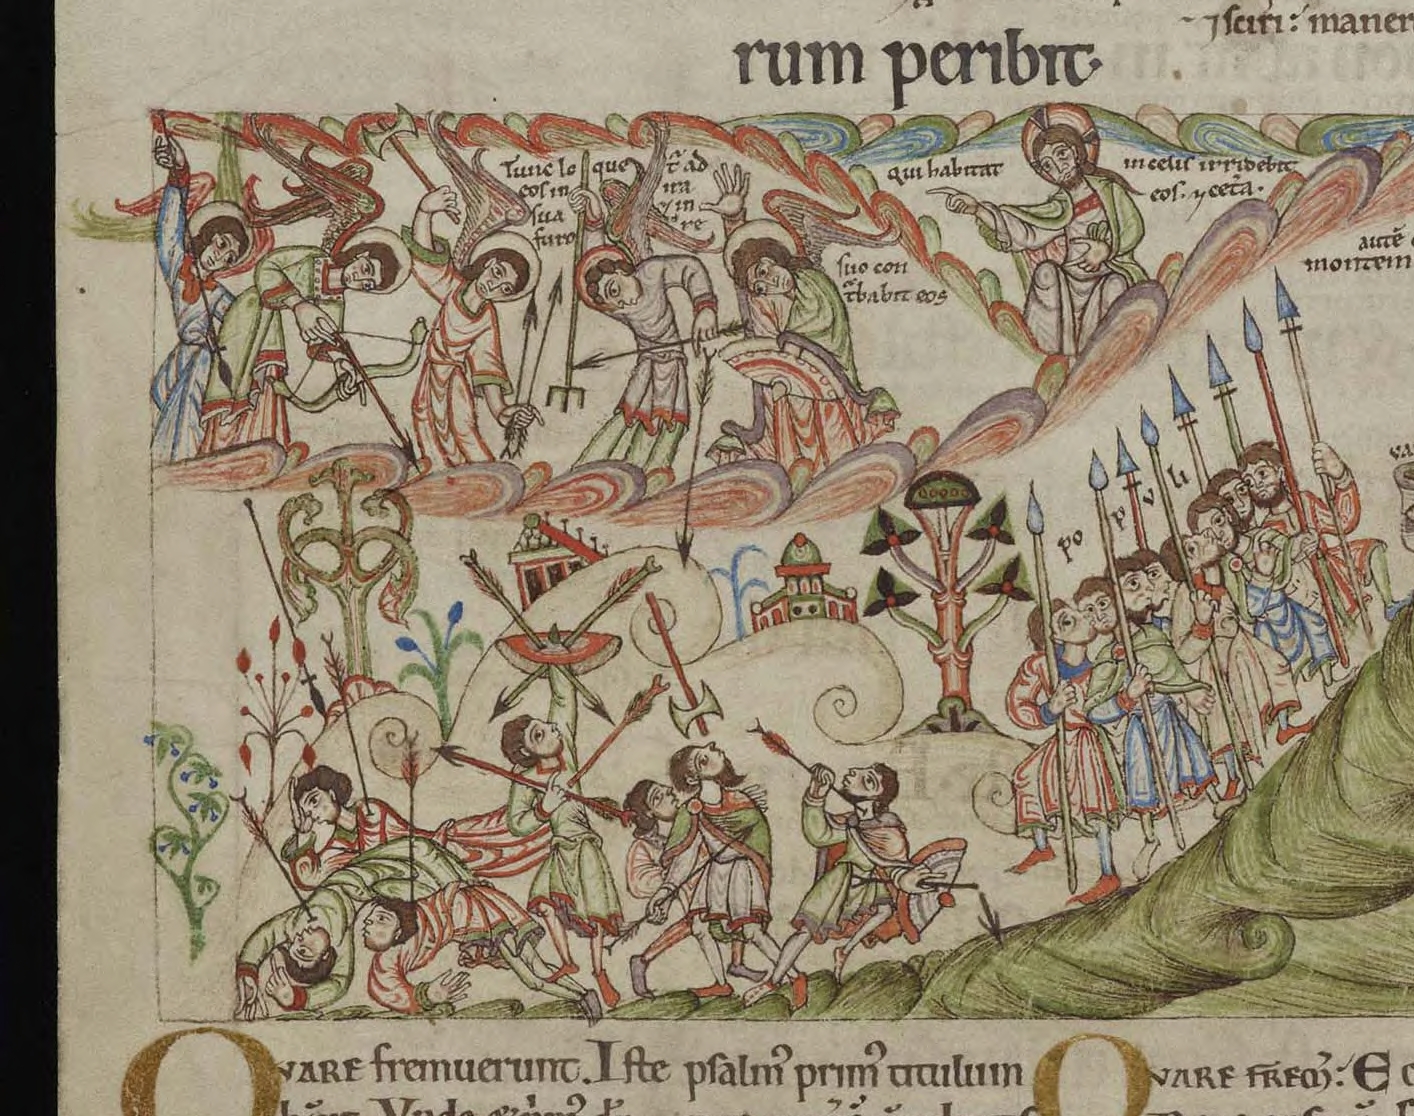 ⁊ sciri: maner
rum peribit.
Tunc lo que t̄ ad
eos in ira
sua ⁊ in
furo re
suo con
t̄babit eos
qui habitat in celis irridebit
eos. ⁊ cetā.
autē
montem
po pu li
QVARE fremuerunt. Iste psalmꝰ primꝰ titulum
QVARE